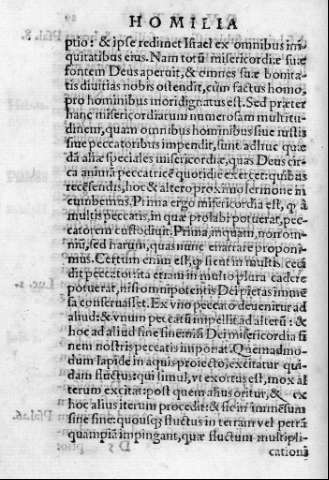 HOMILIA
ptio: & ipse redimet Israel ex omnibus ini-
quitatibus eius. Nam totũ misericordiæ suæ
fontem Deus aperuit, & omnes suæ bonita-
tis diuitias nobis ostendit, cũm factus homo,
pro hominibus mori dignatus est. Sed præter
hanc misericordiarum numerosam multitu-
dinem, quam omnibus hominibus siue iustis
siue peccatoribus impendit, sunt adhuc quæ
dã aliæ speciales misericordiæ, quas Deus cir-
ca animã peccatricẽ quotidie exercet: quibus
recẽsendis, hoc & altero proximo sermone in
cumbemus. Prima ergo misericordia est, ꝙ à
multis peccatis, in quæ prolabi potuerat, pec-
catorem custodiuit. Prima, inquam, non om-
niũ, sed harum, quas nunc enarrare proponi-
mus. Certum enim est, ꝙ sicut in multis ceci
dit peccator: ita etiam in multo plura cadere
potuerat, nisi omnipotentis Dei pietas immẽ
sa conseruasset. Ex vno peccato deuenitur ad
aliud: & vnum peccatũ impellit ad alterũ: &
hoc ad aliud sine fine: nisi Dei misericordia fi
nem nostris peccatis imponat. Quemadmo-
dum lapide in aquis proiecto, excitatur qui-
dam fluctus: qui simul, vt exortus est, mox al
terum excitat: post quem alius oritur, & ex
hoc alius iterum procedit: & sic in immẽsum
sine fine: quousq; fluctus in terram vel petrã
quampiã impingant, quæ fluctum multipli-
cationã